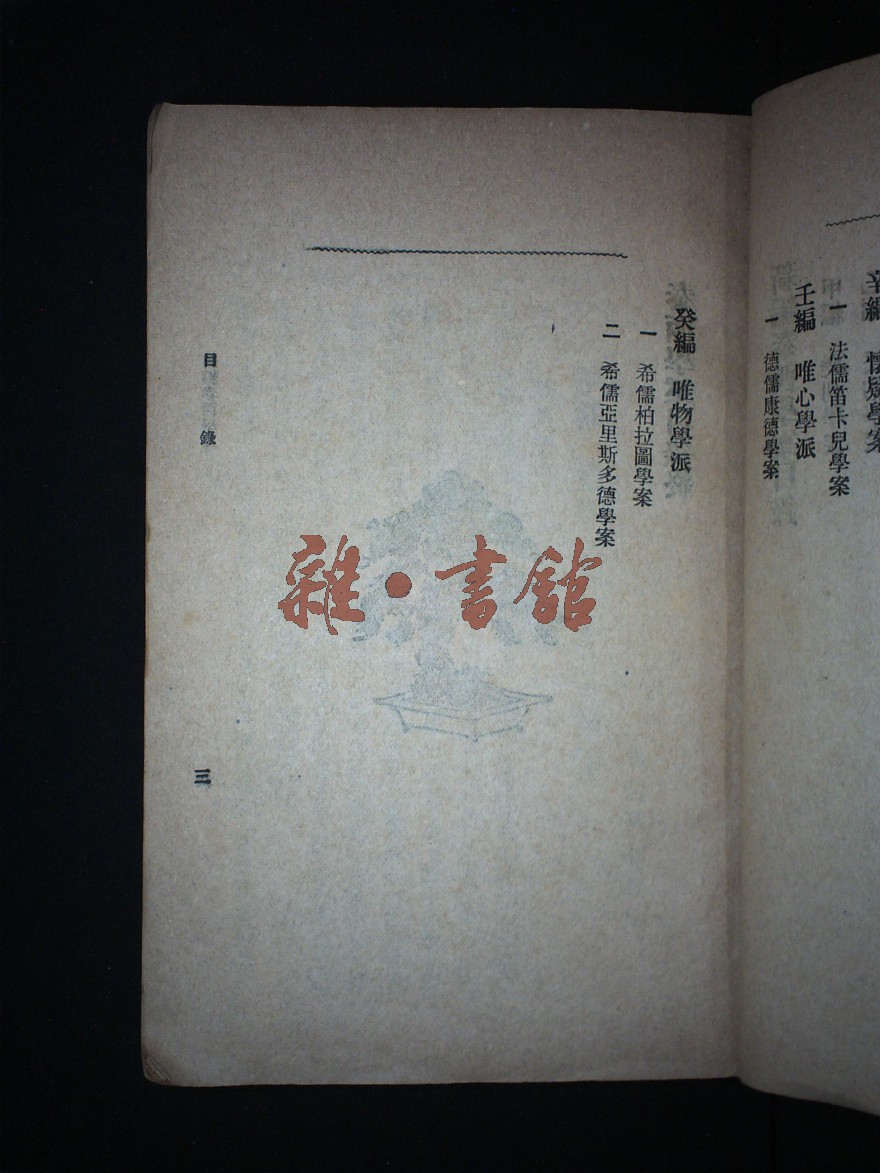 辛編 懷疑學案
一 法儒笛卡兒學案
壬編 唯心學派
一 德儒康德學案
癸編 唯物學派
一 希儒柏拉圖學案
二 希儒亞里斯多德學案
目錄
三
雜·書館